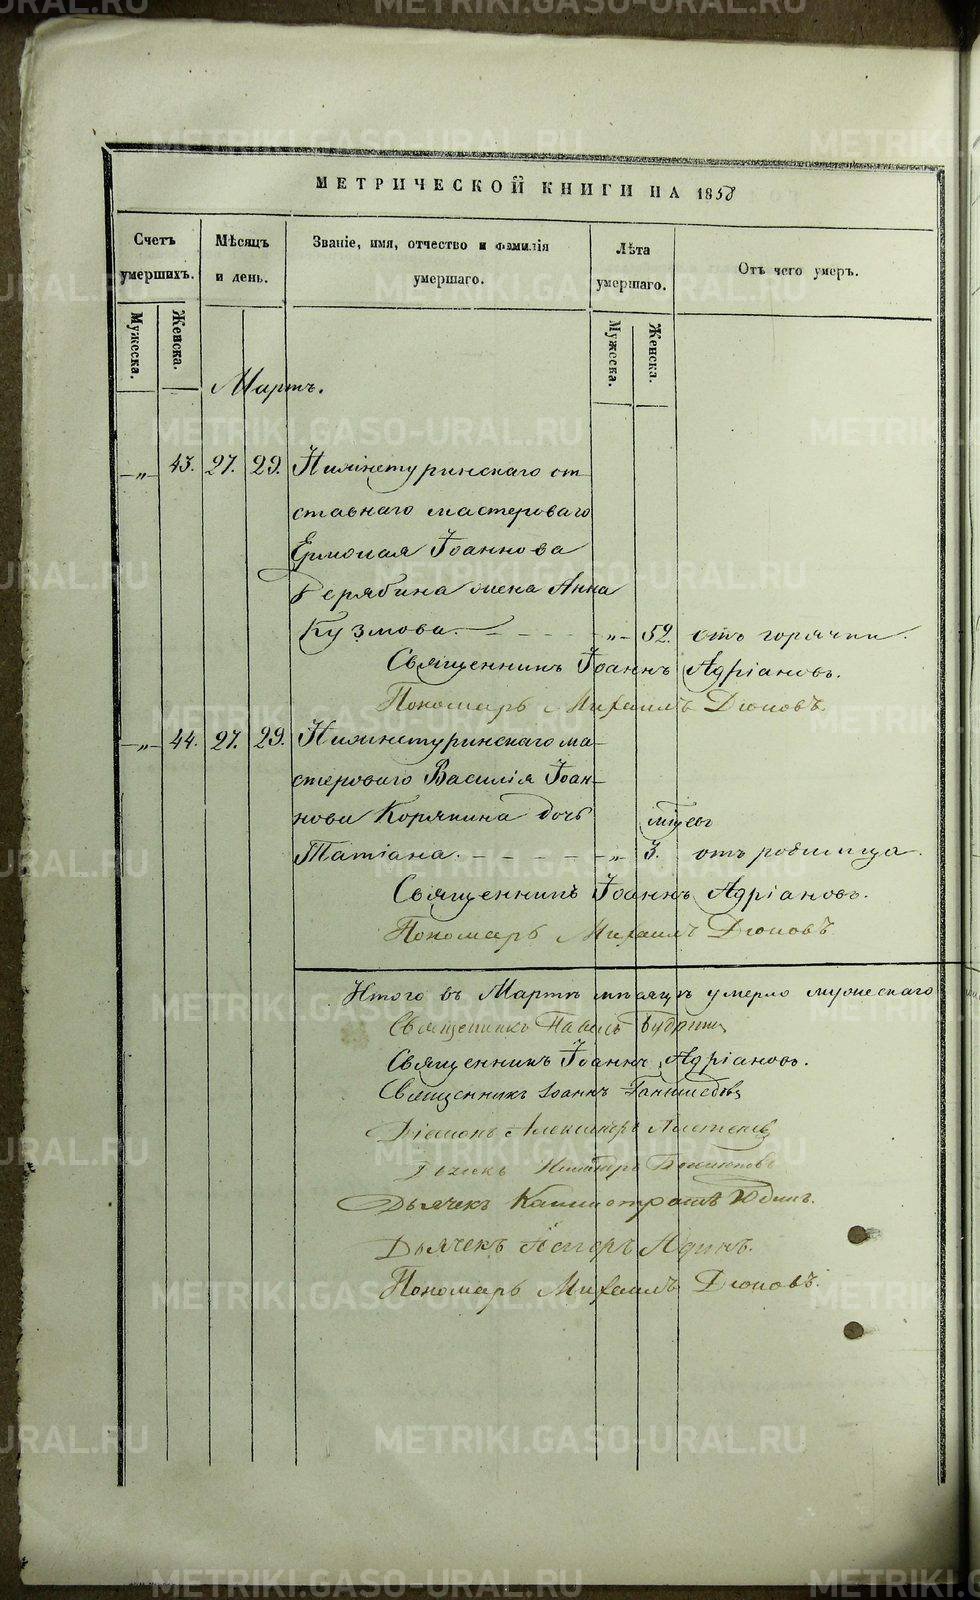 METRIKI.GASO-URAL.RU
МЕТРИЧЕСКОЙ КНИГИ НА 1858
Счетъ умершихъ.
Мѣсяцъ и день.
Званіе, имя, отчество и фамилія умершаго.
Лѣта умершаго.
Отъ чего умеръ.
Мужеска.
Женска.
Мужеска.
Женска.
Мартъ.
—„— 43. 27. 29. Нижнетуринскаго от-
ставнаго мастероваго
Ермолая Іоаннова
жена Анна
Кузмова. „ 52. отъ горячки.
Священникъ Іоаннъ Адріановъ.
Пономарь Михаилъ Дюповъ.
—„— 44. 27. 29. Нижнетуринскаго ма-
стероваго Василія Іоан-
нова Корякина дочь мѣсец
Татіана. „ 3. отъ родимца.
Священникъ Іоаннъ Адріановъ.
Пономарь Михаилъ Дюповъ
Итого въ Мартѣ мѣсяцѣ умерло мужескаго
Священникъ Павелъ
Священникъ Іоаннъ Адріановъ.
Священникъ Іоаннъ
Діаконъ Александръ
Дьячекъ Каллистратъ Юдинъ.
Дьячекъ
Пономарь Михаилъ Дюповъ.